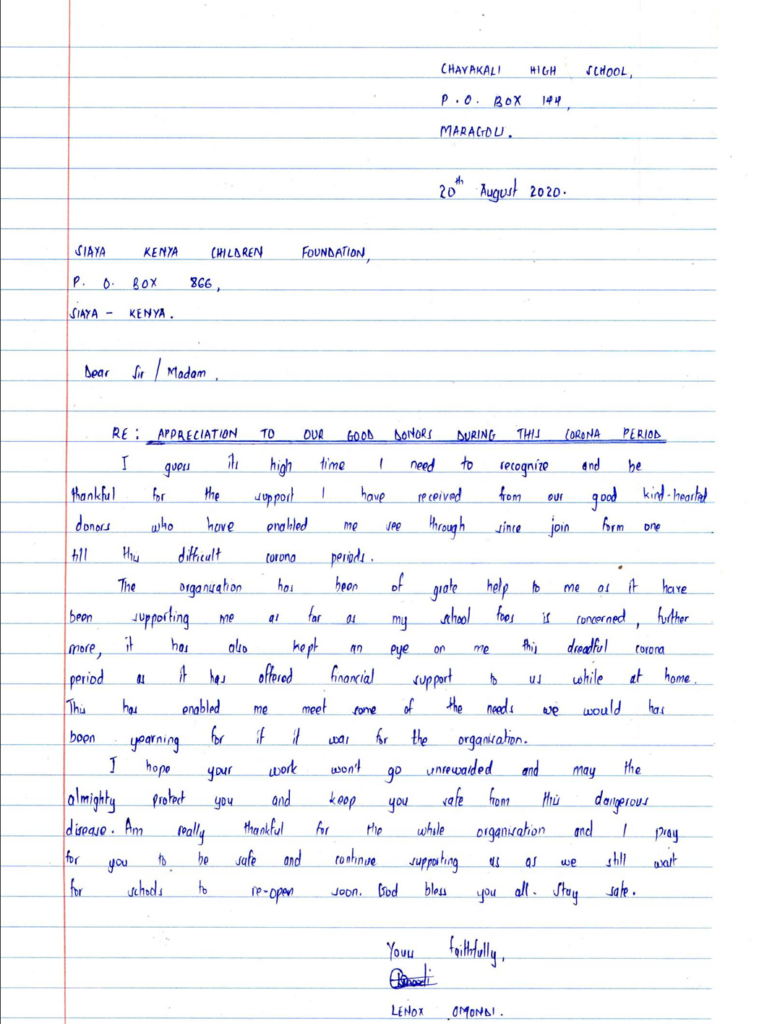 CHAVAKALI HIGH SCHOOL,
P.O. BOX 144,
MARAGOLI.
20th August 2020.
SIAYA KENYA CHILDREN FOUNDATION,
P. O. BOX 866,
SIAYA - KENYA.
Dear Sir / Madam,
RE: APPRECIATION TO OUR GOOD DONORS DURING THIS CORONA PERIOD
I guess its high time I need to recognize and be
thankful for the support I have received from our good kind-hearted
donors who have enabled me see through since join form one
till this difficult corona periods.
The organisation has been of grate help to me as it have
been supporting me as far as my school fees is concerned, further
more, it has also kept an eye on me this dreadful corona
period as it has offered financial support to us while at home.
This has enabled me meet some of the needs we would has
been yearning for if it was for the organisation.
I hope your work won't go unrewaided and may the
almighty protect you and keep you safe from this dangerous
disease. Am really thankful for the while organisation and I pray
for you to be safe and continue supporting us as we still wait
for schools to re-open soon. God bless you all. Stay safe.
Yours faithfully,
Omondi
LENOX OMONDI.